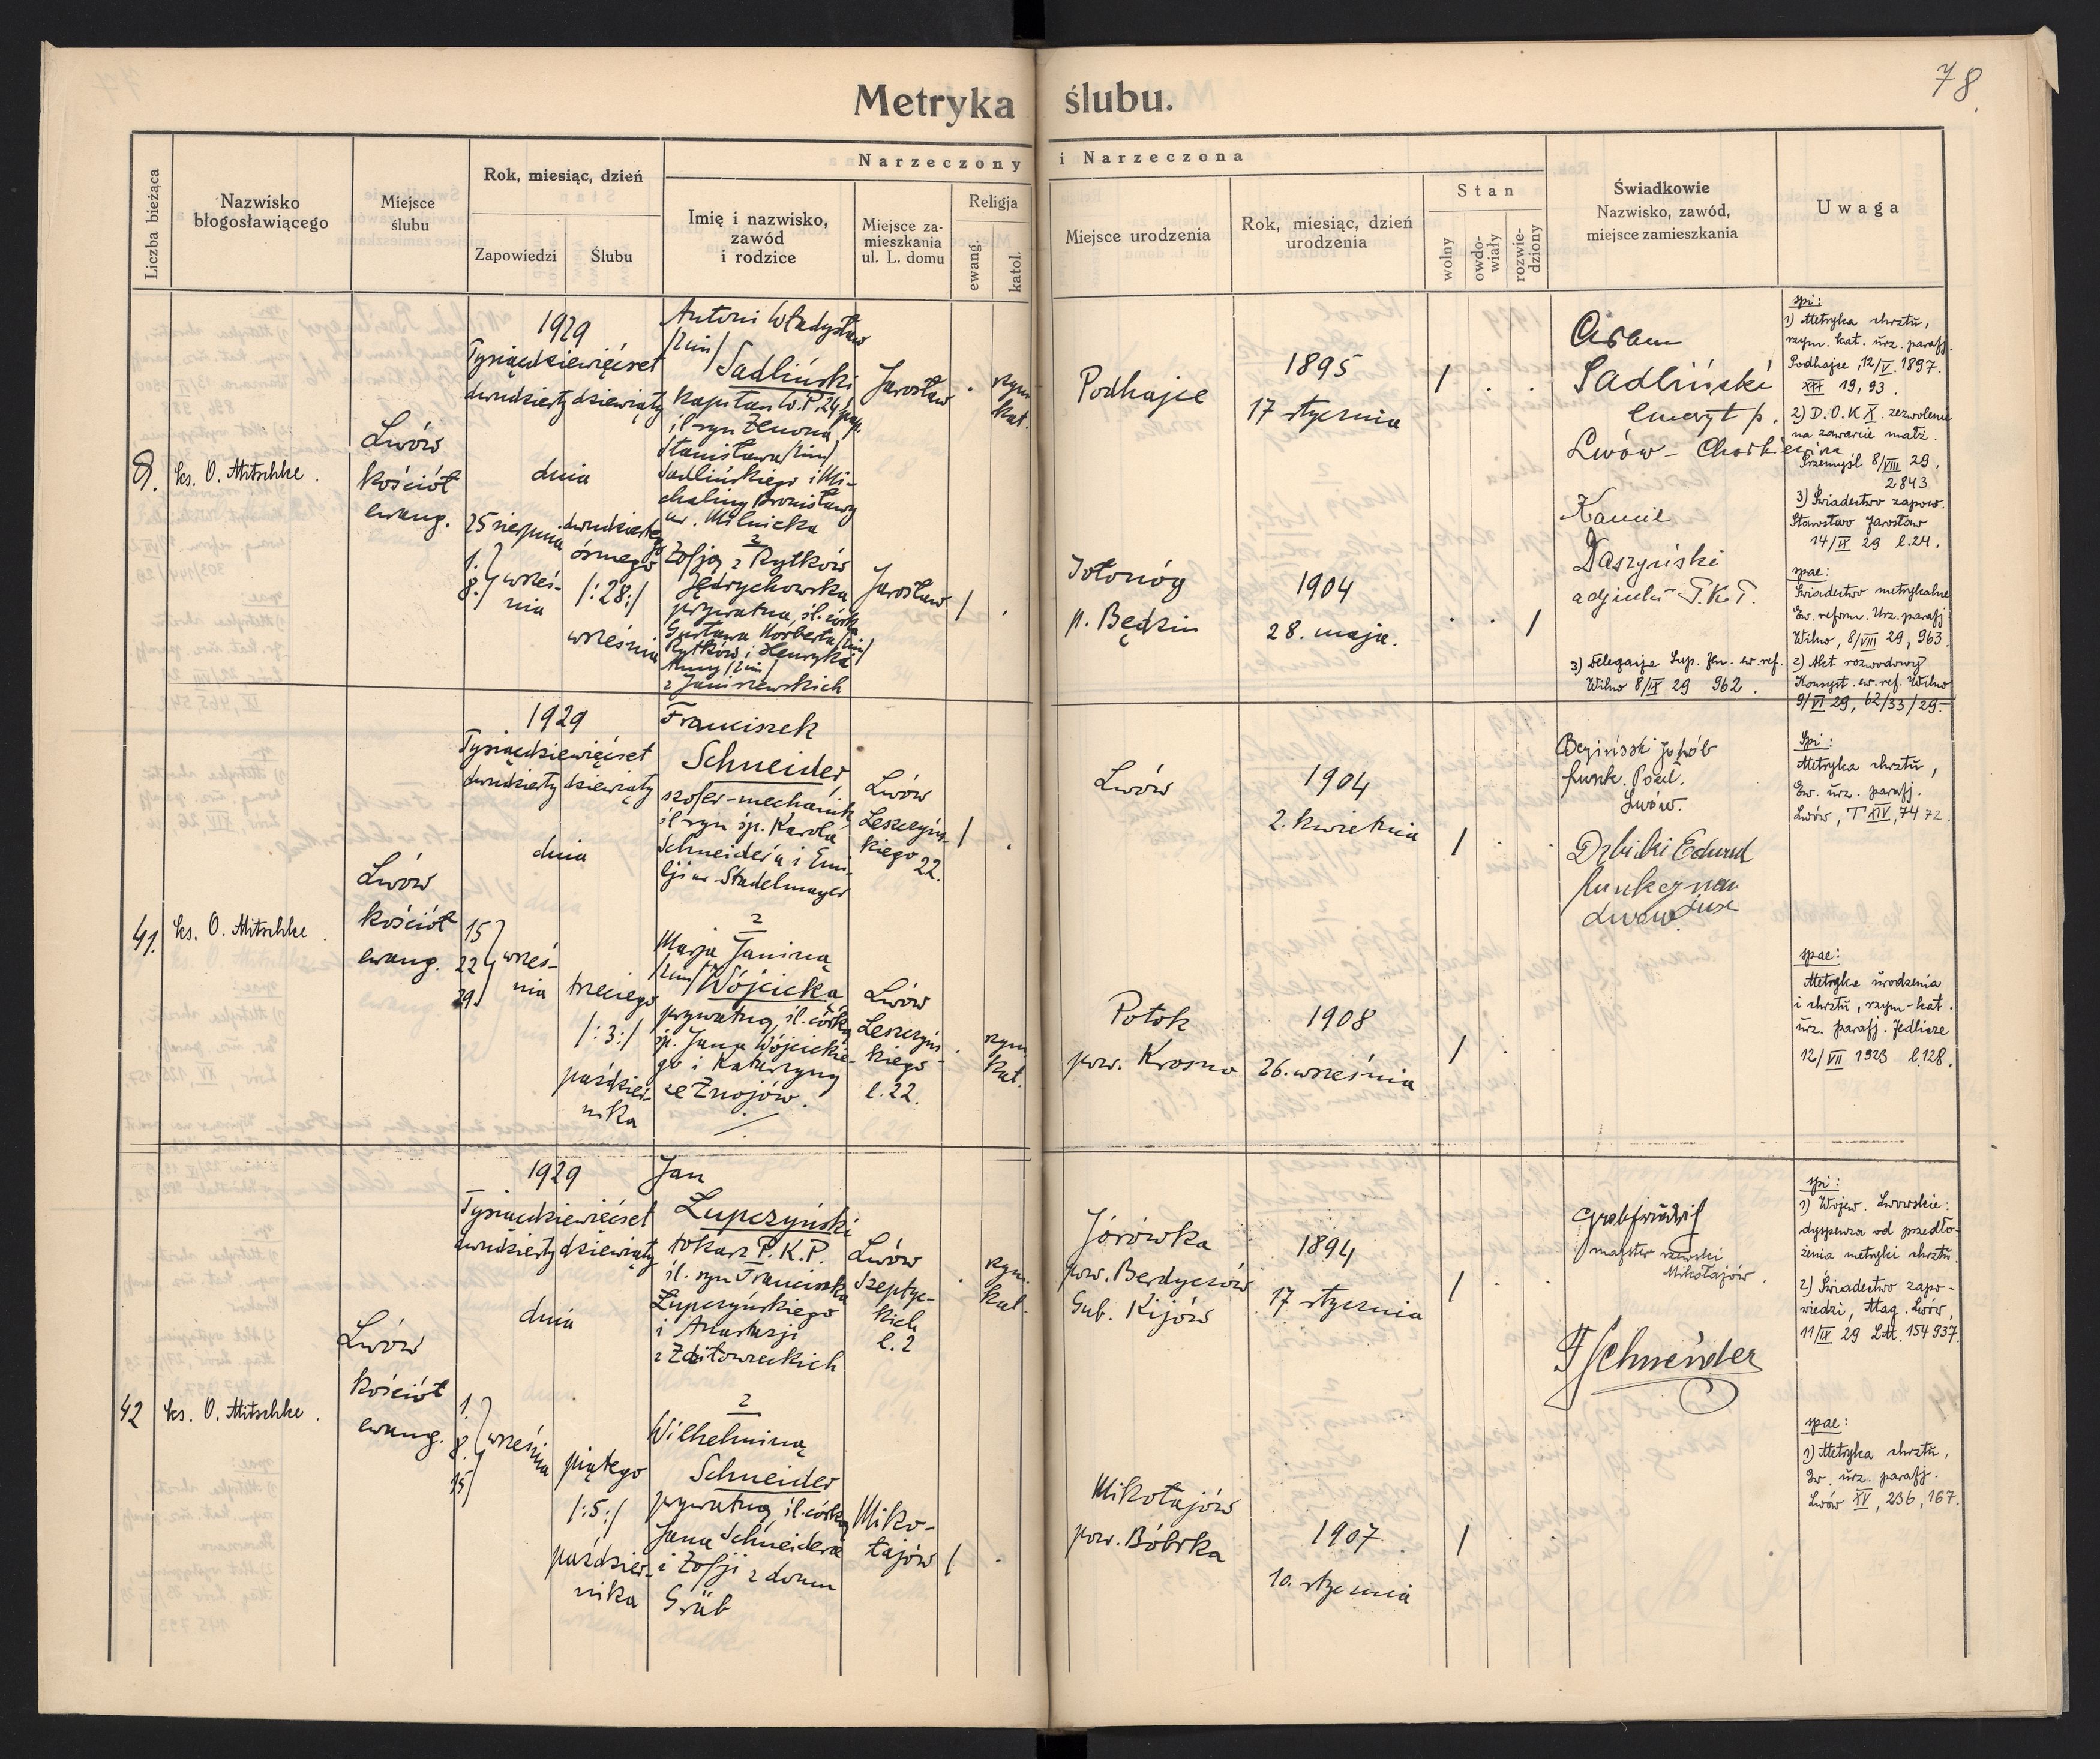 78.
Metryka ślubu.
Liczba bieżąca
Nazwisko
błogosławiącego
Miejsce
ślubu
Rok, miesiąc, dzień
Zapowiedzi
Ślubu
Narzeczony i Narzeczona
Imię i nazwisko,
zawód
i rodzice
Miejsce za-
mieszkania
ul. L. domu
Religja
ewang.
katol.
Miejsce urodzenia
Rok, miesiąc, dzień
urodzenia
Stan
wolny
owdo-
wiały
rozwie-
dziony
Świadkowie
Nazwisko, zawód,
miejsce zamieszkania
Uwaga
9.
ks. O. Mitschke.
Lwów
kościół
ewang.
1929
Tysiącdziewięćset
dwudziesty dziewiąty
dnia
25 sierpnia
1.
8.
wrześ-
nia
dwudziestego
ósmego
/:28:/
września
Antoni Władysław
/2im/
Sadliński
kapitan W.P. 24 pap.
śl. syn Zenona
Stanisława /2im/
Sadlińskiego i Mi-
chaliny Bronisławy
ur. Milnicka
z
Zofją z Rytków
Jędrychowska
prywatna, śl. córk
Gustawa Norberta /2im/
Rytków i Henryki
Anny /2im/
z Janiszewskich
Jarosław
rzym
kat.
Jarosław
/
Podhajce
1895
17 stycznia
/
Sołonóg
p. Będzin
1904
28. maja.
/
Adam
Sadliński
emeryt p.
Lwów -
Kamil
Daszyński
adjunkt
3) Delegacja Sup. Jen. ew. ref.
Wilno 8/IX 29 962.
spi:
1) Metryka chrztu,
rzym. kat. urz. parafj.
Podhajce, 12/V. 1897.
XIII 19, 93.
2) D.O.K. X. zezwolenie
na zawarcie małż.
Przemyśl 8/VIII 29.
2843
3) Świadectwo zapow.
Starostwo Jarosław
14/IX 29 l.24.
spae:
Świadectwo metrykalne
Ew. reform. Urz. parafj
Wilno, 8/VIII 29, 963.
2) Akt rozwodowy
Konsyst. ew. ref. Wilno
9/VI 29, 62/33/29.
41.
ks. O. Mitschke.
Lwów
kościół
ewang.
1929
Tysiącdziewięćset
dwudziesty dziewiąty
dnia
15
22
29
wrześ-
nia
trzeciego
/:3:/
paździer-
nika
Franciszek
Schneider
szofer-mechanik
śl. syn śp. Karola
Schneidera i Emi-
lji ur. Stadelmayer
z
Marją Janiną
/2im/ Wójcicką
prywatną, śl. córką
śp. Jana Wójcickie-
go i Katarzyny
ze Znojów.
Lwów
Leszczyńs-
kiego 22.
/
Lwów
Leszczyńs-
kiego
l.22.
rzym.
kat.
Lwów
1904
2. kwietnia
/
Potok
pow. Krosno
1908
26. września
/
Jakób
funk. Poczt.
Lwów.
Edward
Lwów
Spi:
Metryka chrztu,
Ew. urz. parafj.
Lwów, T XIV, 74 72.
spae:
Metryka urodzenia
i chrztu, rzym-kat.
urz. parafj. Jedlicze
12/VII 1923 l.128.
42
ks. O. Mitschke.
Lwów
kościół
ewang.
1929
Tysiącdziewięćset
dwudziesty dziewiąty
dnia
1.
8.
15
września
piątego
/:5:/
paździer-
nika
Jan
Łupczyński
tokarz P.K.P.
śl. syn Franciszka
Łupczyńskiego
i Anastazji
z Zditowieckich
z
Wilhelminą
Schneider
prywatną, śl. córką
Jana Schneidera
i Zofji z domu
Gräb
Lwów
Szeptyc-
kich
l.2
rzym.
kat.
Miko-
łajów
/
Józówka
pow. Berdyczów
Gub. Kijów
1894
17 stycznia
/
Mikołajów
pow. Bóbrka
1907
10. stycznia
/
Mikołajów.
F Schneider
spi:
1) Wojew. Lwowskie:
dyspenza od przedło-
żenia metryki chrztu
2) Świadectwo zapo-
wiedzi, Mag. Lwów,
11/IX 29 LM. 154937.
spae:
1) Metryka chrztu,
Ew. urz. parafj.
Lwów XV, 236, 167.